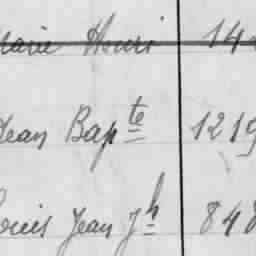 Marie Henri 142
Jean Bapte 1219
Louis Jean Jh 848